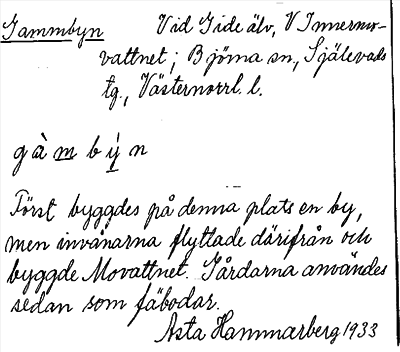 Gammbyn Vid Gide älv, V Innernor-
vattnet; Björna sn, Själevads
tg., Västernorrl. l.
gàm b ýn
Först byggdes på denna plats en by,
men invånarna flyttade därifrån och
byggde Movattnet. Gårdarna användes
sedan som fäbodar.
Asta Hammarberg 1933